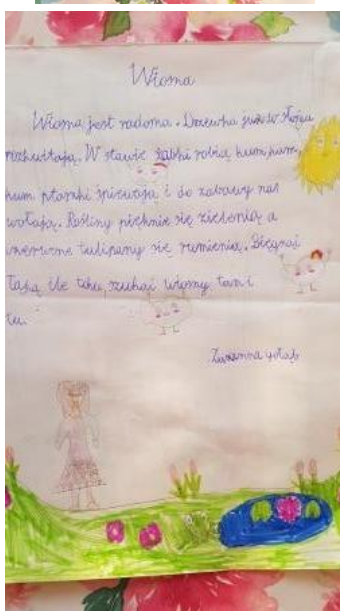 Wiosna
Wiosna jest radosna. Drzewka już w słońcu
rozkwitają. W stawie żabki robią kum kum,
kum ptaszki śpiewają i do zabawy nas
wołają. Rośliny pięknie się zielenią a
czerwone tulipany się rumienią. Biegnij
tu.
Zuzanna